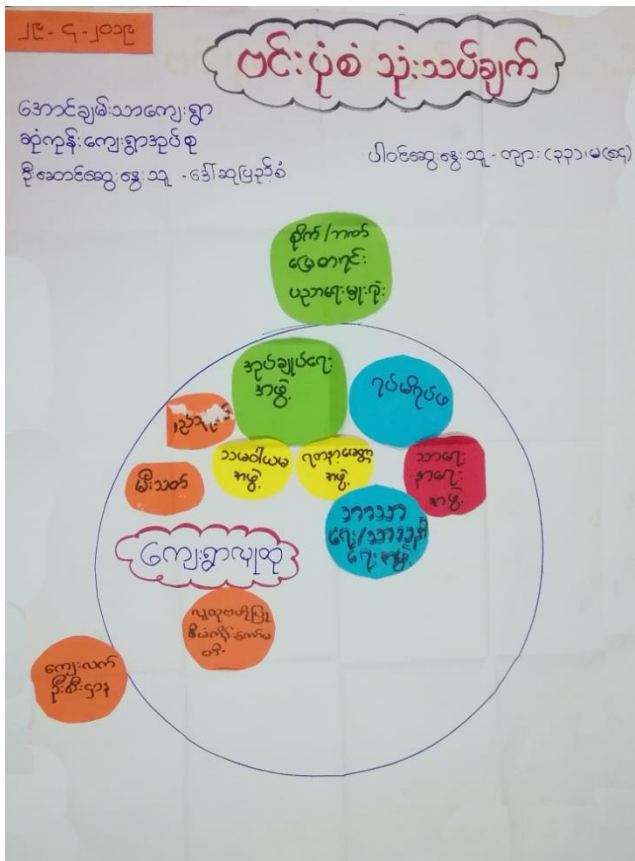 ၂၉-၄-၂၀၁၉
ဗင်းပုံစံ သုံးသပ်ချက်
အောင်ချမ်းသာကျေးရွာ
ဆုံကုန်းကျေးရွာအုပ်စု
ဦးဆောင်ဆွေးနွေးသူ - ဒေါ်ဆုပြည့်စုံ
ပါဝင်ဆွေးနွေးသူ - ကျား (၃၃)၊ မ(၈၄)
စိုက်/ဘဏ်
မြေစာရင်း
ပညာရေးမှူးရုံး
အုပ်ချုပ်ရေး
အဖွဲ့
ရပ်မိရပ်ဖ
သမဝါယမ
အဖွဲ့
ရတနာ့မေတ္တာ
အဖွဲ့
သာရေး
နာရေး
အဖွဲ့
မီးသတ်
ဘာသာ
ရေး/သာသနာ
ရေးအဖွဲ့
ကျေးရွာလူထု
လူထုဗဟိုပြု
စီမံကိန်းကော်မ
တီ
ကျေးလက်
ဦးစီးဌာန